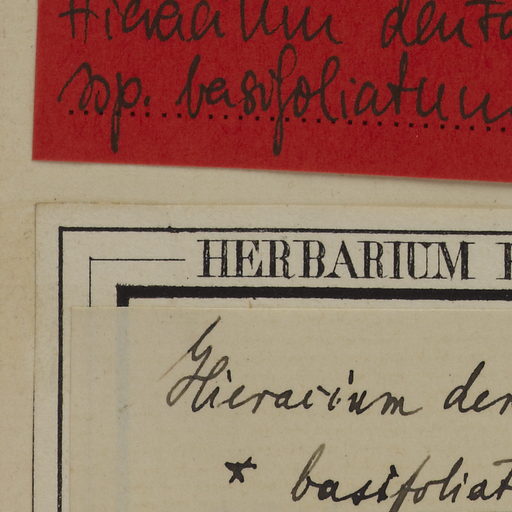 Hieracium denta
ssp. basifoliatum
HERBARIUM
Hieracium den
* basifoliat